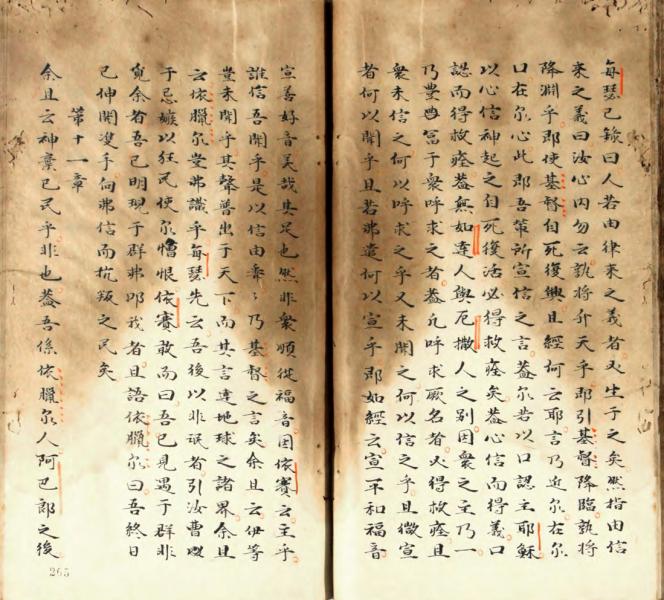 每瑟已錄曰人若由律來之義者必生于之矣然指由信
來之義曰汝心內勿云孰將升天乎即引基督降臨孰將
降淵乎即使基督自死復興且經何云耶言乃近尔在尔
口在尔心此即吾等所宣信之言葢尔若以口認主耶穌
以心信神起之自死復活必得救矣葢心信而得義口
認而得救葢無如達人與厄撒人之別因衆之主乃一
乃豊冨于衆呼求之者葢凡呼求厥名者必得救且
衆未信之何以呼求之乎又未聞之何以信之乎且微宣
者何以聞乎且若弗遣何以宣乎即如經云宣平和福音
宣善好音美哉其足也然非衆順從福音因依賽云主乎
誰信吾聞乎是以信由乃基督之言矣余且云伊等
豈未聞乎其聲普出于天下而其言達地球之諸界余且
云依臘尔豈弗識乎每瑟先云吾後以非氓者引汝曹
于忌嫉以狂民使尔憎恨依賽敢而曰吾已見遇于群非
覔余者吾已明現于群弗叩我者且語依臘尔曰吾終日
已伸開雙手向弗信而抗叛之民矣
第十一章
余且云神棄已民乎非也葢吾係依臘尔人阿巴郎之後
265